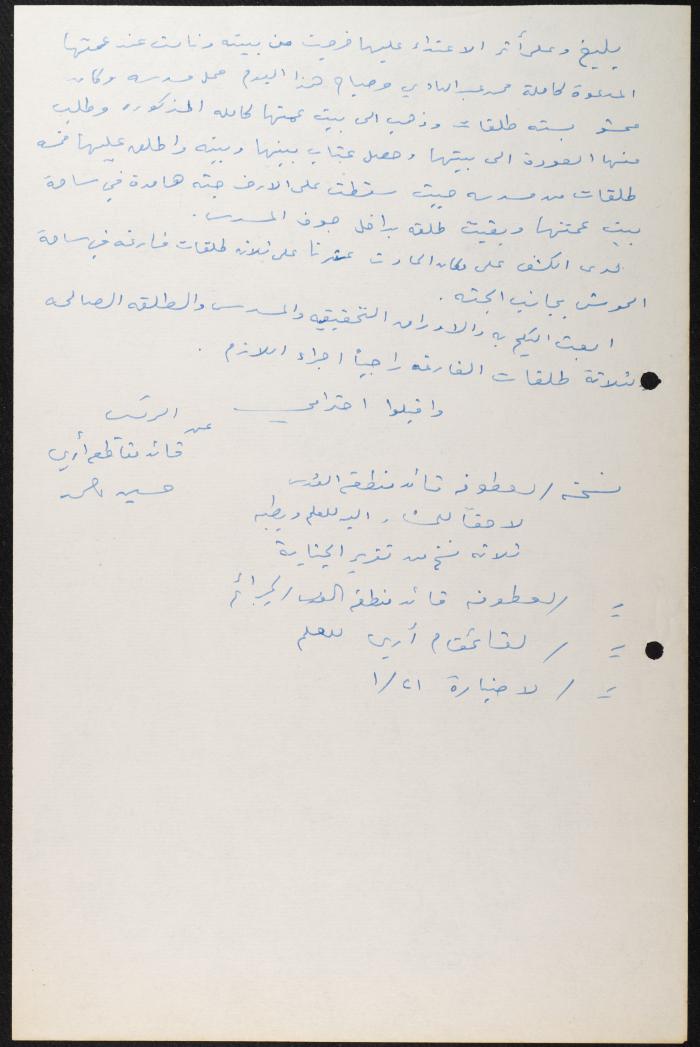 بليغ وعلى أثر الاعتداء عليها خرجت من بيته ونامت عند عمتها
المدعوة كاملة محمد عبد الهادي وصباح هذا اليوم حمل مسدسه وكان
محشو بسته طلقات وذهب الى بيت عمتها كامله المذكوره وطلب
منها العودة الى بيتها وحصل عتاب بينها وبينه واطلق عليها خمسه
طلقات من مسدسه حيث سقطت على الارض جثه هامدة في ساحة
بيت عمتها وبقيت طلقه بداخل جوف المسدس .
لدى الكشف على مكان الحادث عثرنا على ثلاث طلقات فارغه في ساحة
الحوش بجانب الجثه .
ابعث اليكم به والاوراق التحقيقيه والمسدس والطلقه الصالحه
وثلاثة طلقات الفارغه راجياً اجراء اللازم .
واقبلوا احترامي
الرئيس
عن قائد مقاطعة أريحا
حسين
نسخه / لعطوفة قائد منطقه القدس
لاحقاً للعلم وبطيه
ثلاثه نسخ من تقرير الجناية
= / لعطوفه قائد منطقه القدس / الجرائم
= / لقائمقام أريحا للعلم
= / لاضبارة ١/٢١